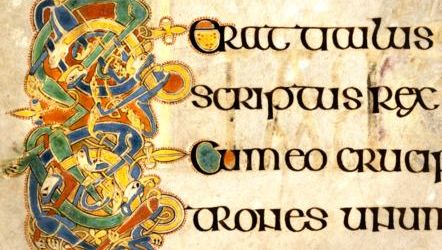 erat titulus
scriptus rex
cum eo crucif
trones unum